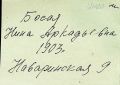 Босая
Нина Аркадьевна
1903.
Наваринская 9